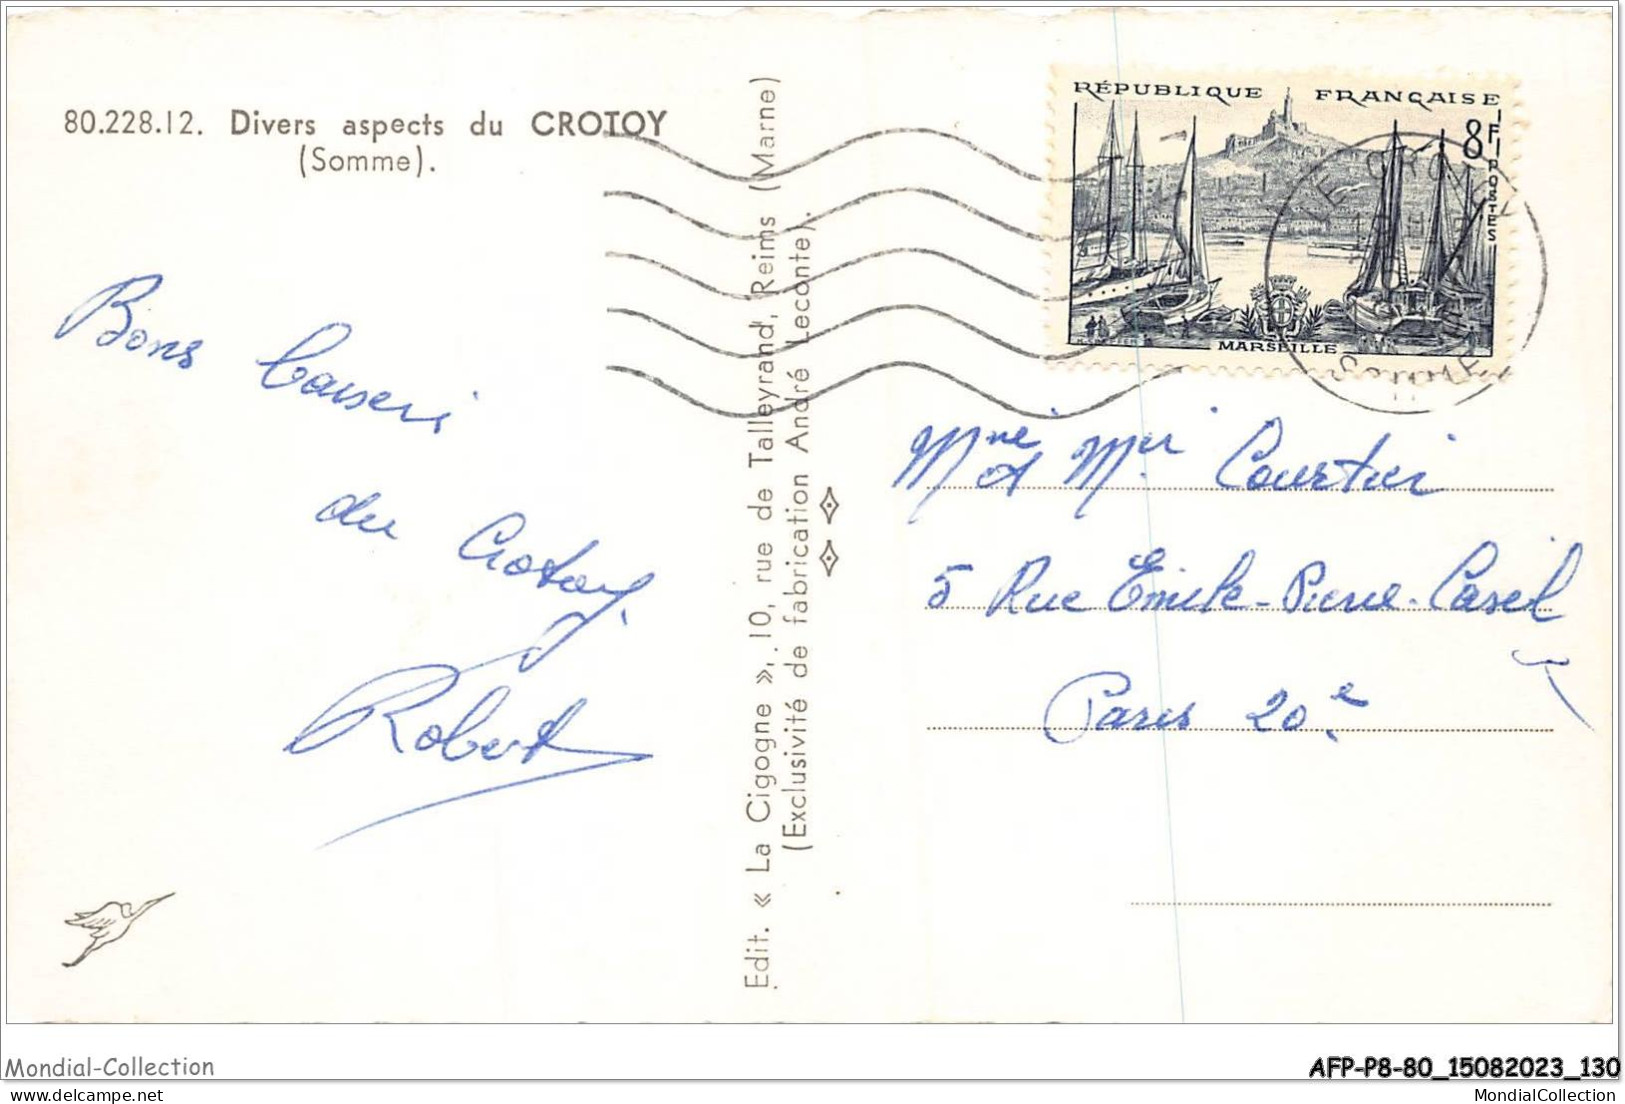 80.228.12. Divers aspects du CROTOY
(Somme).
Bons Baisers
du Crotoy.
Robert
Edit. « La Cigogne », 10, rue de Talleyrand, Reims (Marne)
(Exclusivité de fabrication André Leconte).
RÉPUBLIQUE FRANÇAISE
8F
POSTES
MARSEILLE
LE CROTOY
SOMME
Mme et Mr Courtier
5 Rue Emile-Pierre-Casel
Paris 20e
Mondial-Collection
AFP-P8-80_15082023_130
delcampe.net
MondialCollection